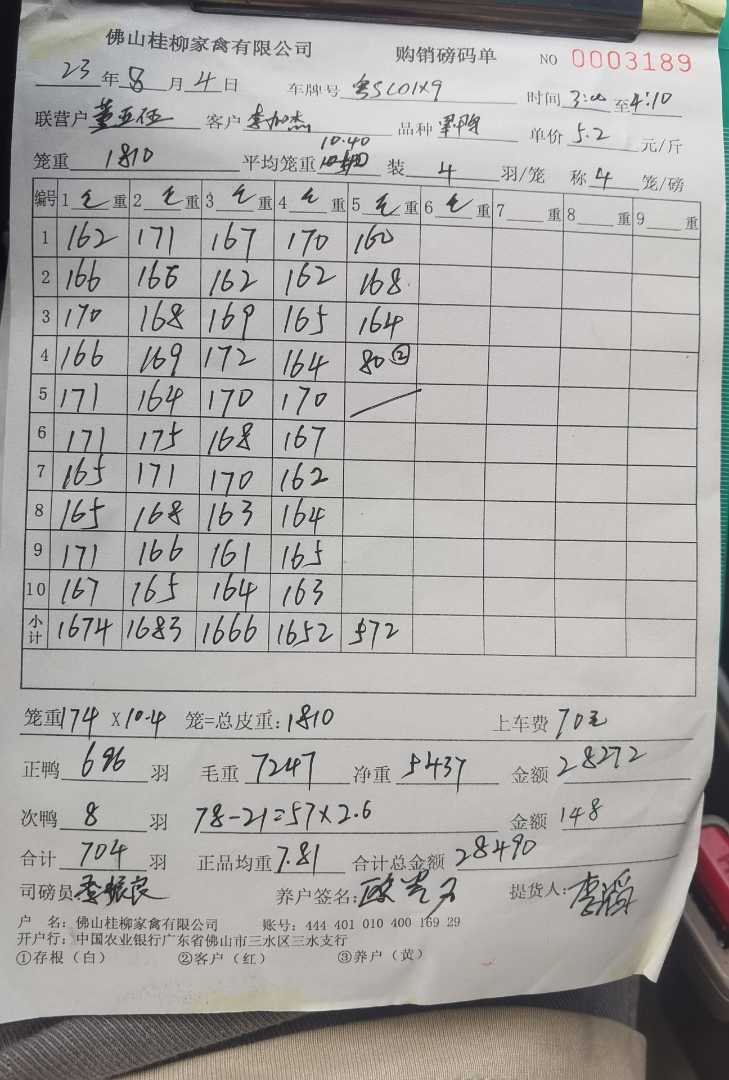 佛山桂柳家禽有限公司 购销磅码单 NO 0003189
23年8月4日 车牌号 粤SL01X9 时间 3:00 至 4:10
联营户 客户 李加杰 品种 单价 5.2 元/斤
笼重 1810 平均笼重 10.40 装 4 羽/笼 称 4 笼/磅
编号 1 毛 重 2 毛 重 3 毛 重 4 毛 重 5 毛 重 6 毛 重 7 重 8 重 9 重
1 162 171 167 170 160
2 166 166 162 162 168
3 170 168 169 165 164
4 166 169 172 164 80②
5 171 164 170 170
6 171 175 168 167
7 165 171 170 162
8 165 168 163 164
9 171 166 161 165
10 167 165 164 163
小计 1674 1683 1666 1652 572
笼重174 X10.4 笼=总皮重:1810 上车费 70元
正鸭 696 羽 毛重 7247 净重 5437 金额 28272
次鸭 8 羽 78-21=57×2.6 金额 148
合计 704 羽 正品均重 7.81 合计总金额 28490
司磅员 李振良 养户签名: 提货人:
户 名: 佛山桂柳家禽有限公司 账号: 444 401 010 400 169 29
开户行: 中国农业银行广东省佛山市三水区三水支行
①存根（白） ②客户（红） ③养户（黄）